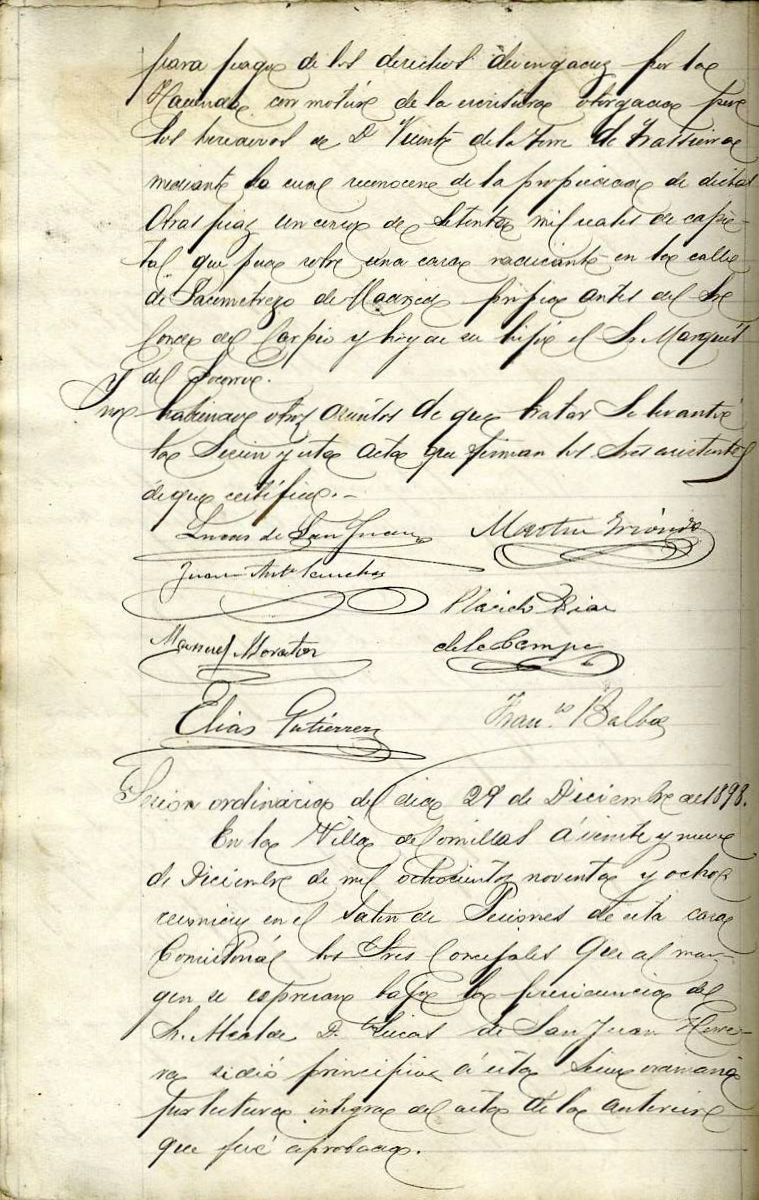 para pago de los derechos devengados por la
Hacienda con motivo de la escritura otorgada por
los herederos de D. Vicente de la Torre de Trassierra
mediante la cual reconocen de la propiedad de dichas
Obras pias un censo de setenta mil reales de capi-
tal que pesa sobre una casa radicante en la calle
de Jacometrezo de Madrid propia antes del Sr
Conde del Carpio y hoy de su hijo el Sr. Marqués
del Socorro.
Y no habiendo otros asuntos de que tratar se levantó
la Sesion y esta acta que firman los Sres asistentes
de que certifico.-
Lucas de San Juan Martin
Juan Antº Sanchez
Placido Diaz
Manuel Morator de la Campa
Elias Gutiérrez Franco Balbas
Sesion ordinaria del dia 29 de Diciembre de 1898.
En la Villa de Comillas á veinte y nueve
de Diciembre de mil ochocientos noventa y ocho
reunidos en el Salon de Sesiones de esta casa
Consistorial los Sres Concejales que al mar-
gen se espresan bajo la presidencia del
Sr. Alcalde D. Lucas de San Juan Herre-
ra se dió principio á esta Sesion ordinaria
por lectura integra del acta de la anterior
que fué aprobada.